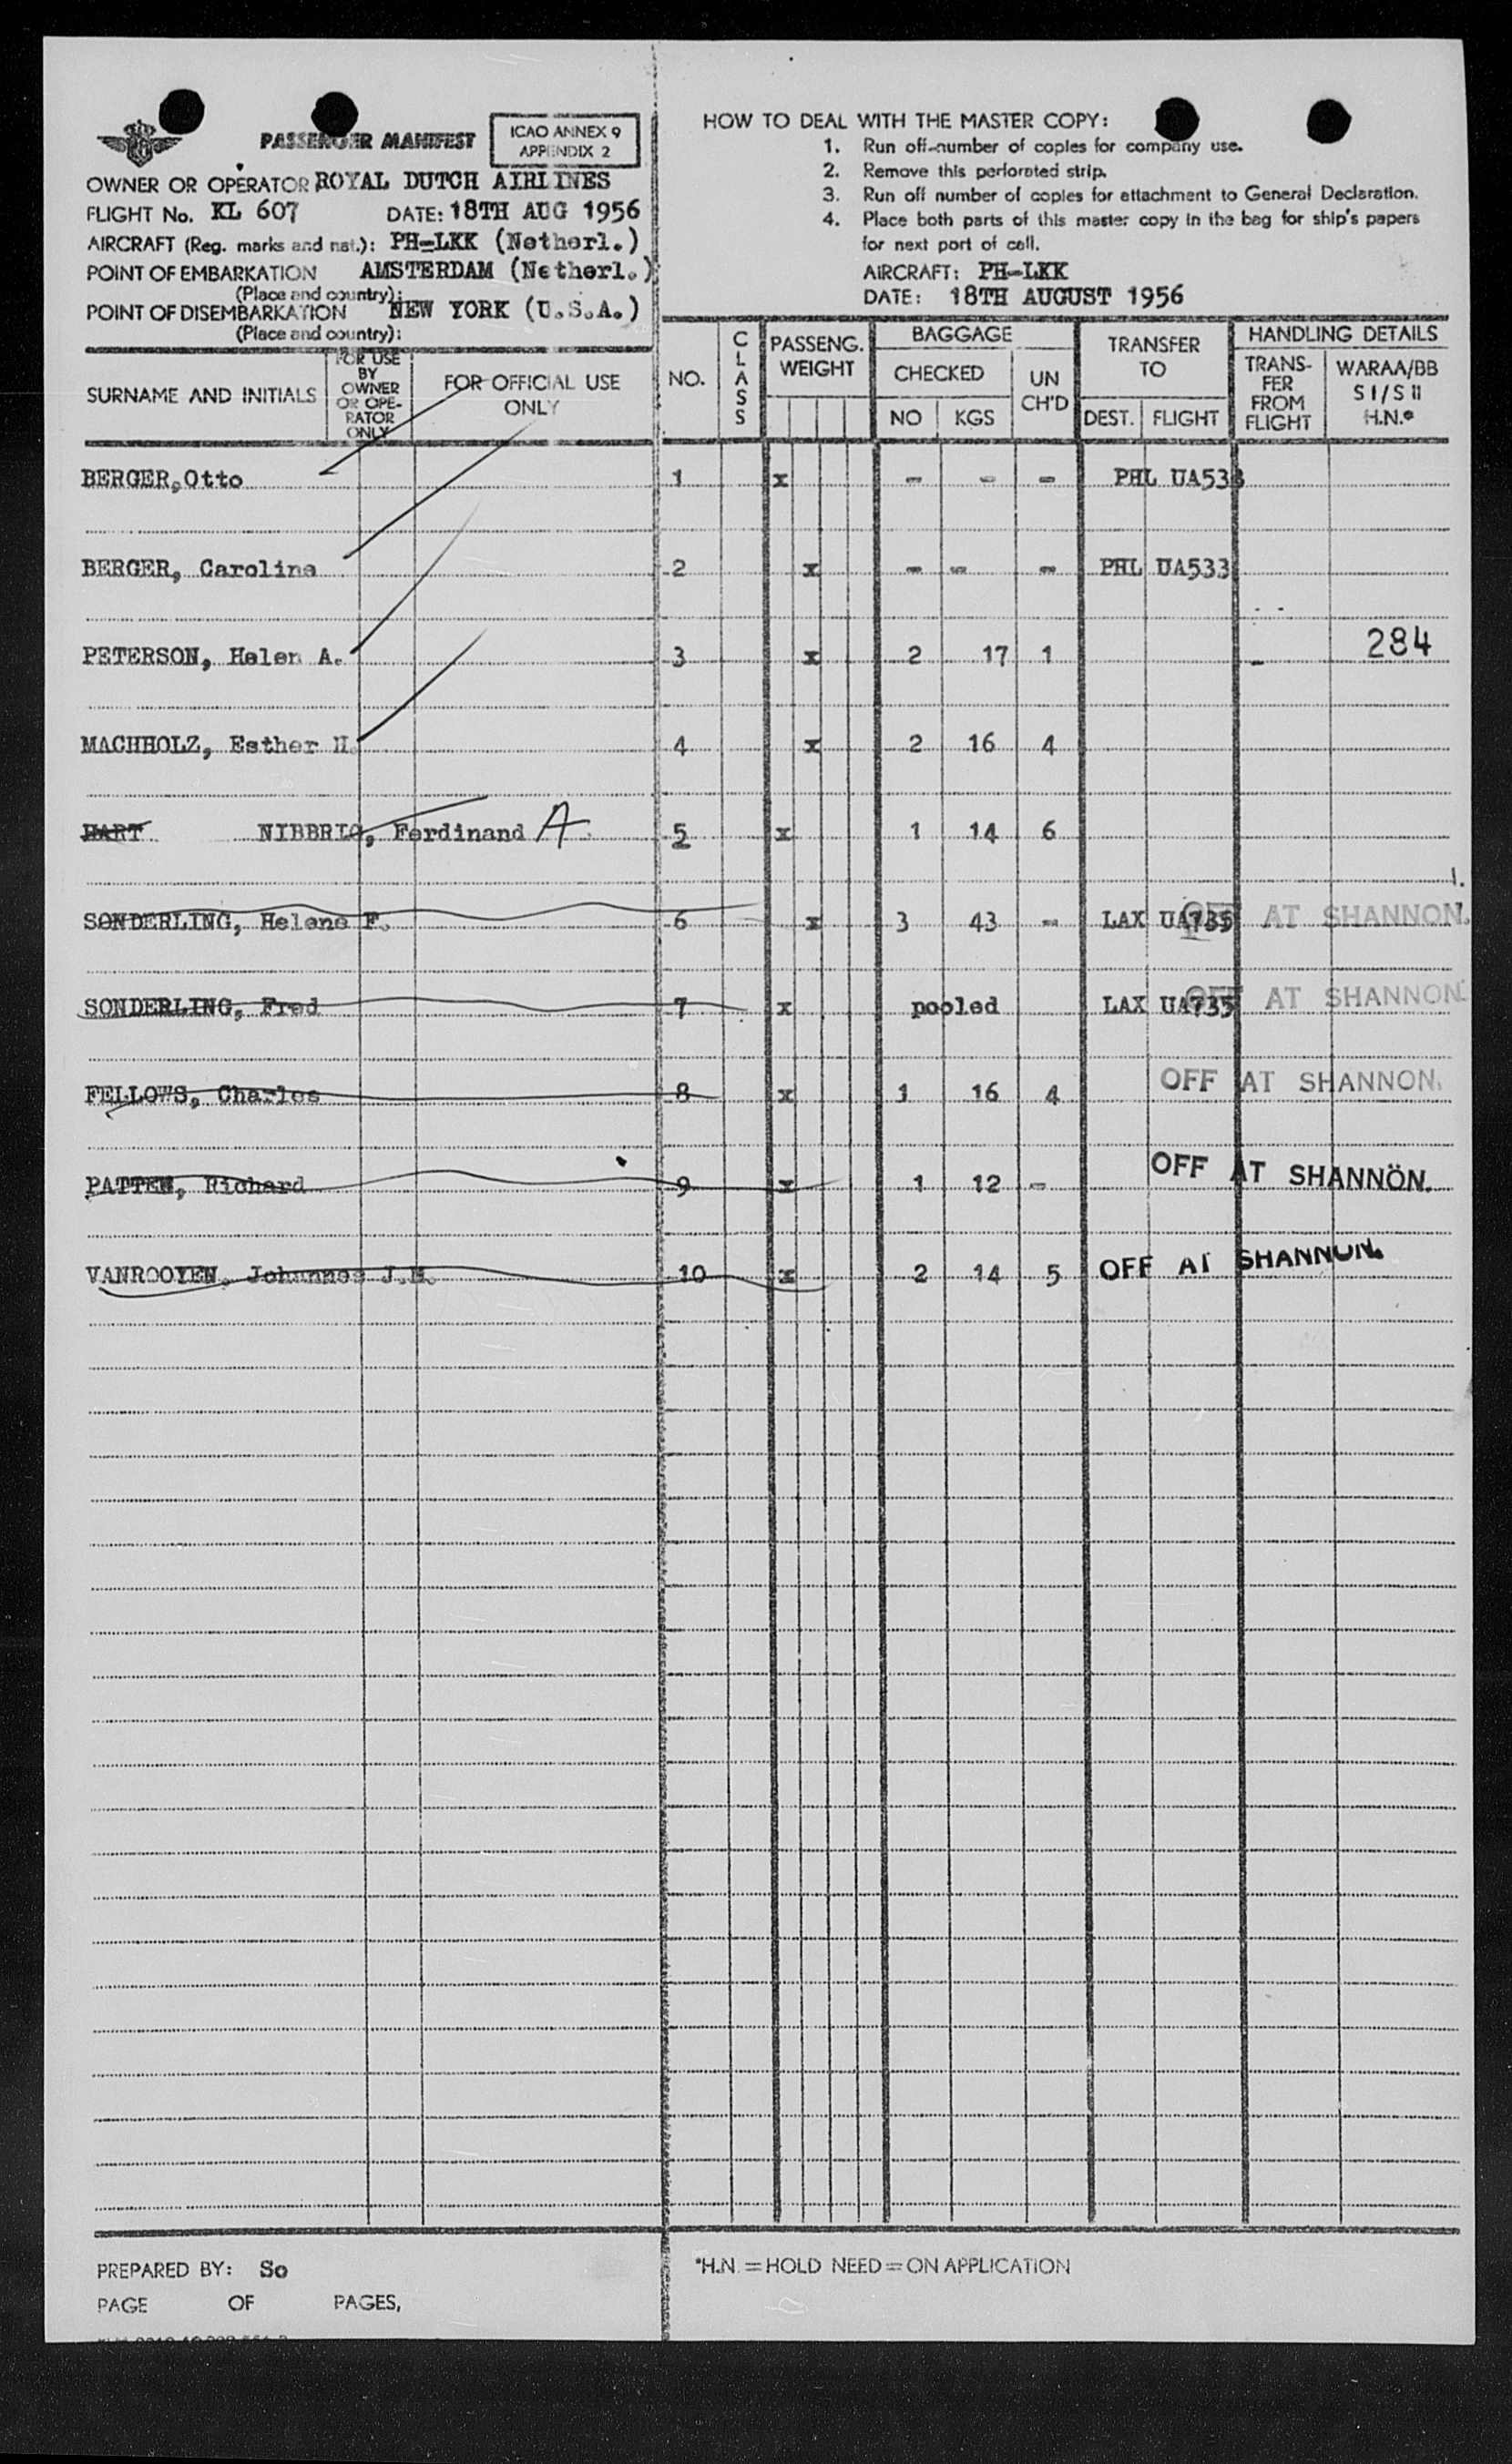 PASSENGER MANIFEST
ICAO ANNEX 9
APPENDIX 2
OWNER OR OPERATOR ROYAL DUTCH AIRLINES
FLIGHT No. KL 607 DATE: 18TH AUG 1956
AIRCRAFT (Reg. marks and nat.): PH-LKK (Netherl.)
POINT OF EMBARKATION AMSTERDAM (Netherl.)
(Place and country):
POINT OF DISEMBARKATION NEW YORK (U.S.A.)
(Place and country):
HOW TO DEAL WITH THE MASTER COPY:
1. Run off-number of copies for company use.
2. Remove this perforated strip.
3. Run off number of copies for attachment to General Declaration.
4. Place both parts of this master copy in the bag for ship's papers
for next port of call.
AIRCRAFT: PH-LKK
DATE: 18TH AUGUST 1956
SURNAME AND INITIALS
FOR USE
BY
OWNER
OR OPE-
RATOR
ONLY
FOR OFFICIAL USE
ONLY
NO.
CLASS
PASSENG.
WEIGHT
BAGGAGE
CHECKED
NO KGS
UN
CH'D
TRANSFER
TO
DEST. FLIGHT
HANDLING DETAILS
TRANS-
FER
FROM
FLIGHT
WARAA/BB
S I/S II
H.N.*
BERGER, Otto 1 x - - - PHL UA533
BERGER, Caroline 2 x - - - PHL UA533
PETERSON, Helen A. 3 x 2 17 1 - 284
MACHHOLZ, Esther H. 4 x 2 16 4
HART NIBBRIG, Ferdinand A 5 x 1 14 6
1.
SONDERLING, Helene F. 6 x 3 43 - LAX UA735 OFF AT SHANNON.
SONDERLING, Fred 7 x pooled LAX UA735 OFF AT SHANNON.
FELLOWS, Charles 8 x 1 16 4 OFF AT SHANNON.
PATTEN, Richard 9 x 1 12 - OFF AT SHANNON.
VANROOYEN, Johannes J.H. 10 x 2 14 5 OFF AT SHANNON.
PREPARED BY: So
PAGE OF PAGES,
*H.N. = HOLD NEED = ON APPLICATION